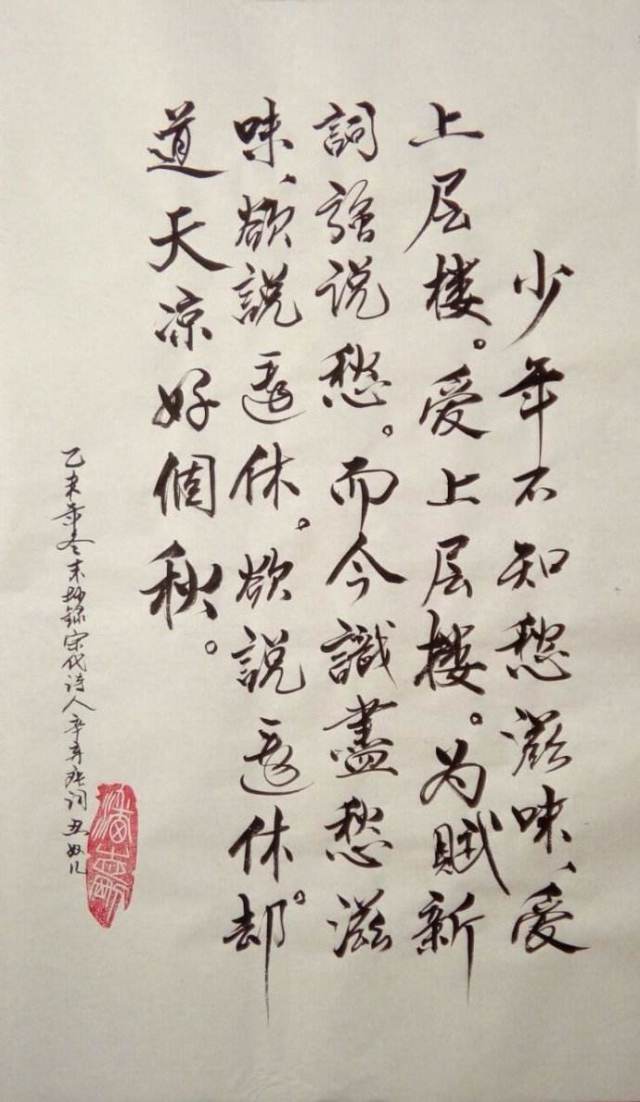 少年不知愁滋味、爱
上层楼。爱上层楼。为赋新
詞强说愁。而今識盡愁滋
味、欲説還休。欲説還休。却
道天凉好個秋。
乙未年冬末抄録宋代诗人辛弃疾词丑奴儿